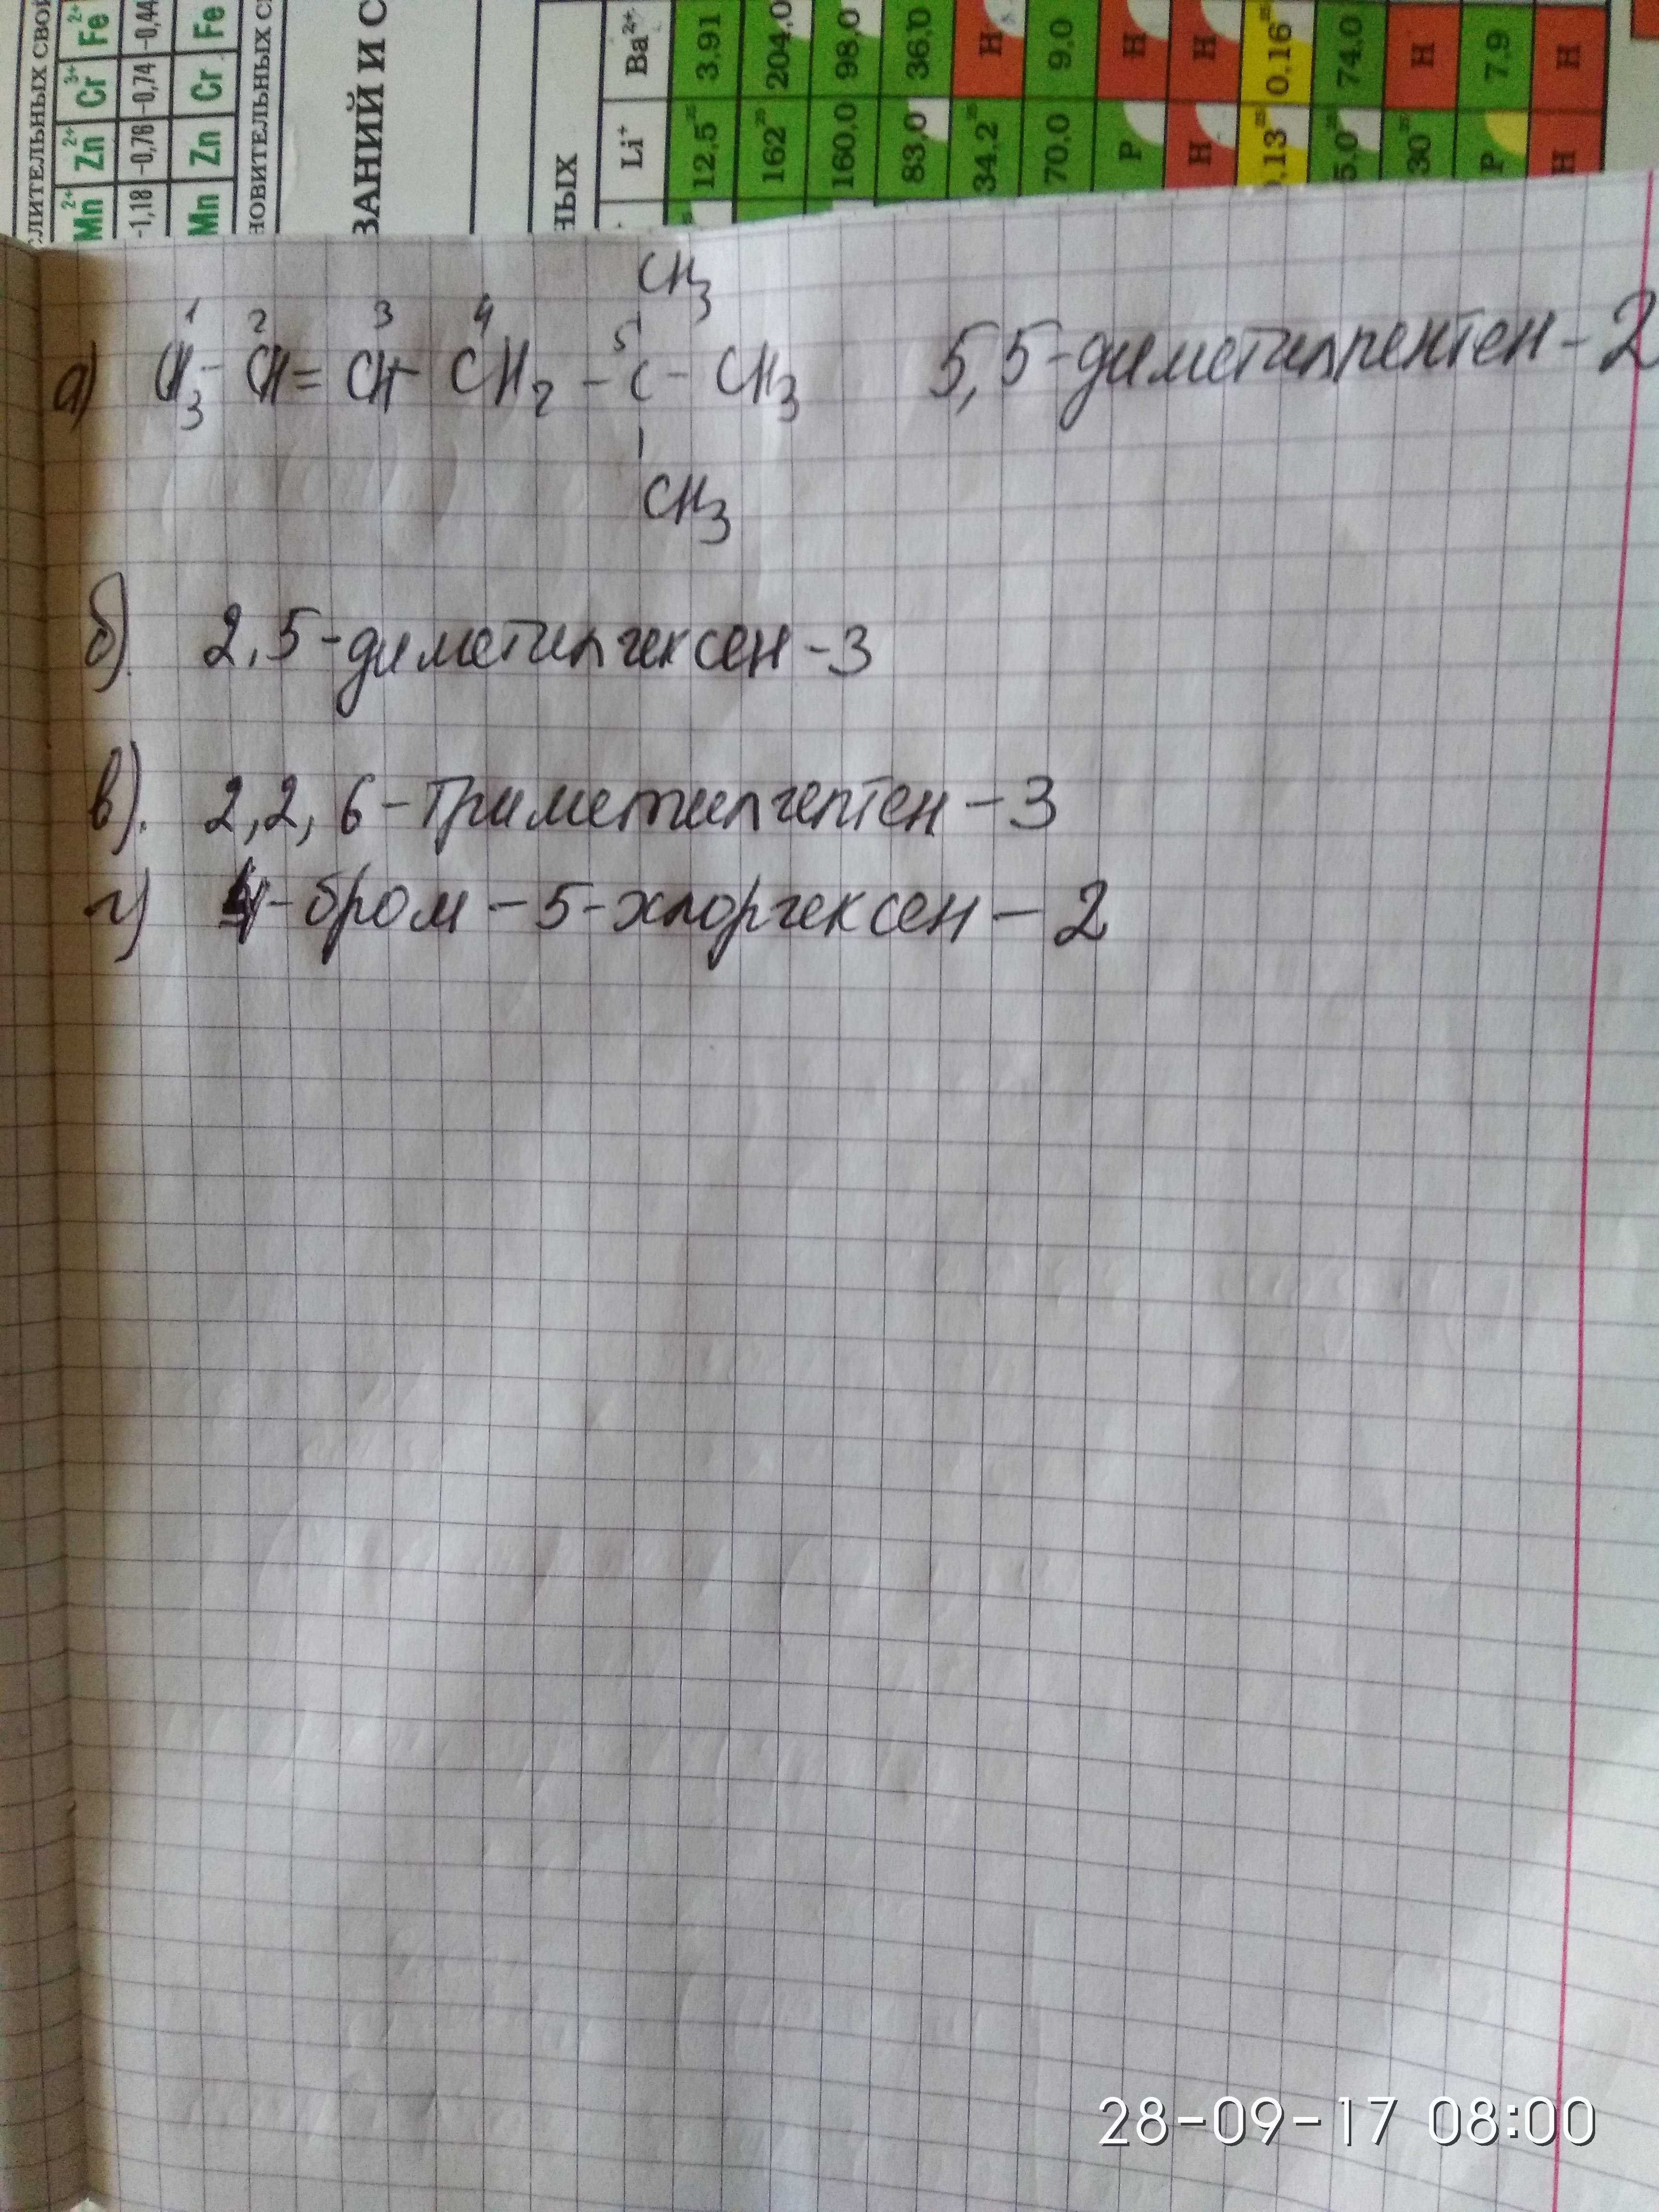 СЛИТЕЛЬНЫХ СВОЙ
Mn²⁺ Zn²⁺ Cr³⁺ Fe²⁺
-1,18 -0,76 -0,74 -0,44
Mn Zn Cr Fe
НОВИТЕЛЬНЫХ С
ЗАНИЙ И С
НЫХ
Li⁺ Ba²⁺
12,5²⁵ 3,91
162²⁵ 204,0
160,0 98,0
83,0 36,0
34,2²⁵ Н
70,0 9,0
Р Н
Н Н
0,13²⁵ 0,16²⁵
5,0²⁵ 74,0
30²⁵ Н
Р 7,9
Н Н
CH3
1 2 3 4 5
а) CH3 - CH = CH - CH2 - C - CH3 5,5-диметилпентен-2
CH3
б). 2,5-диметилгексен-3
в). 2,2,6-триметилгептен-3
г) 4-бром-5-хлоргексен-2
28-09-17 08:00